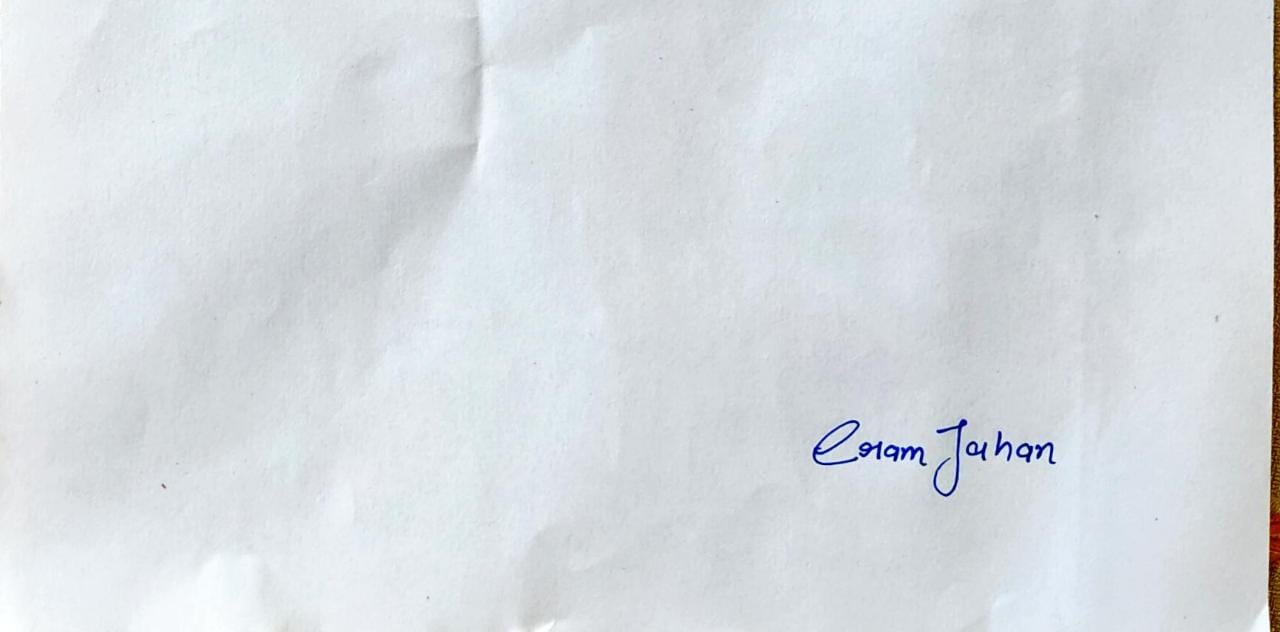 Eram Jahan